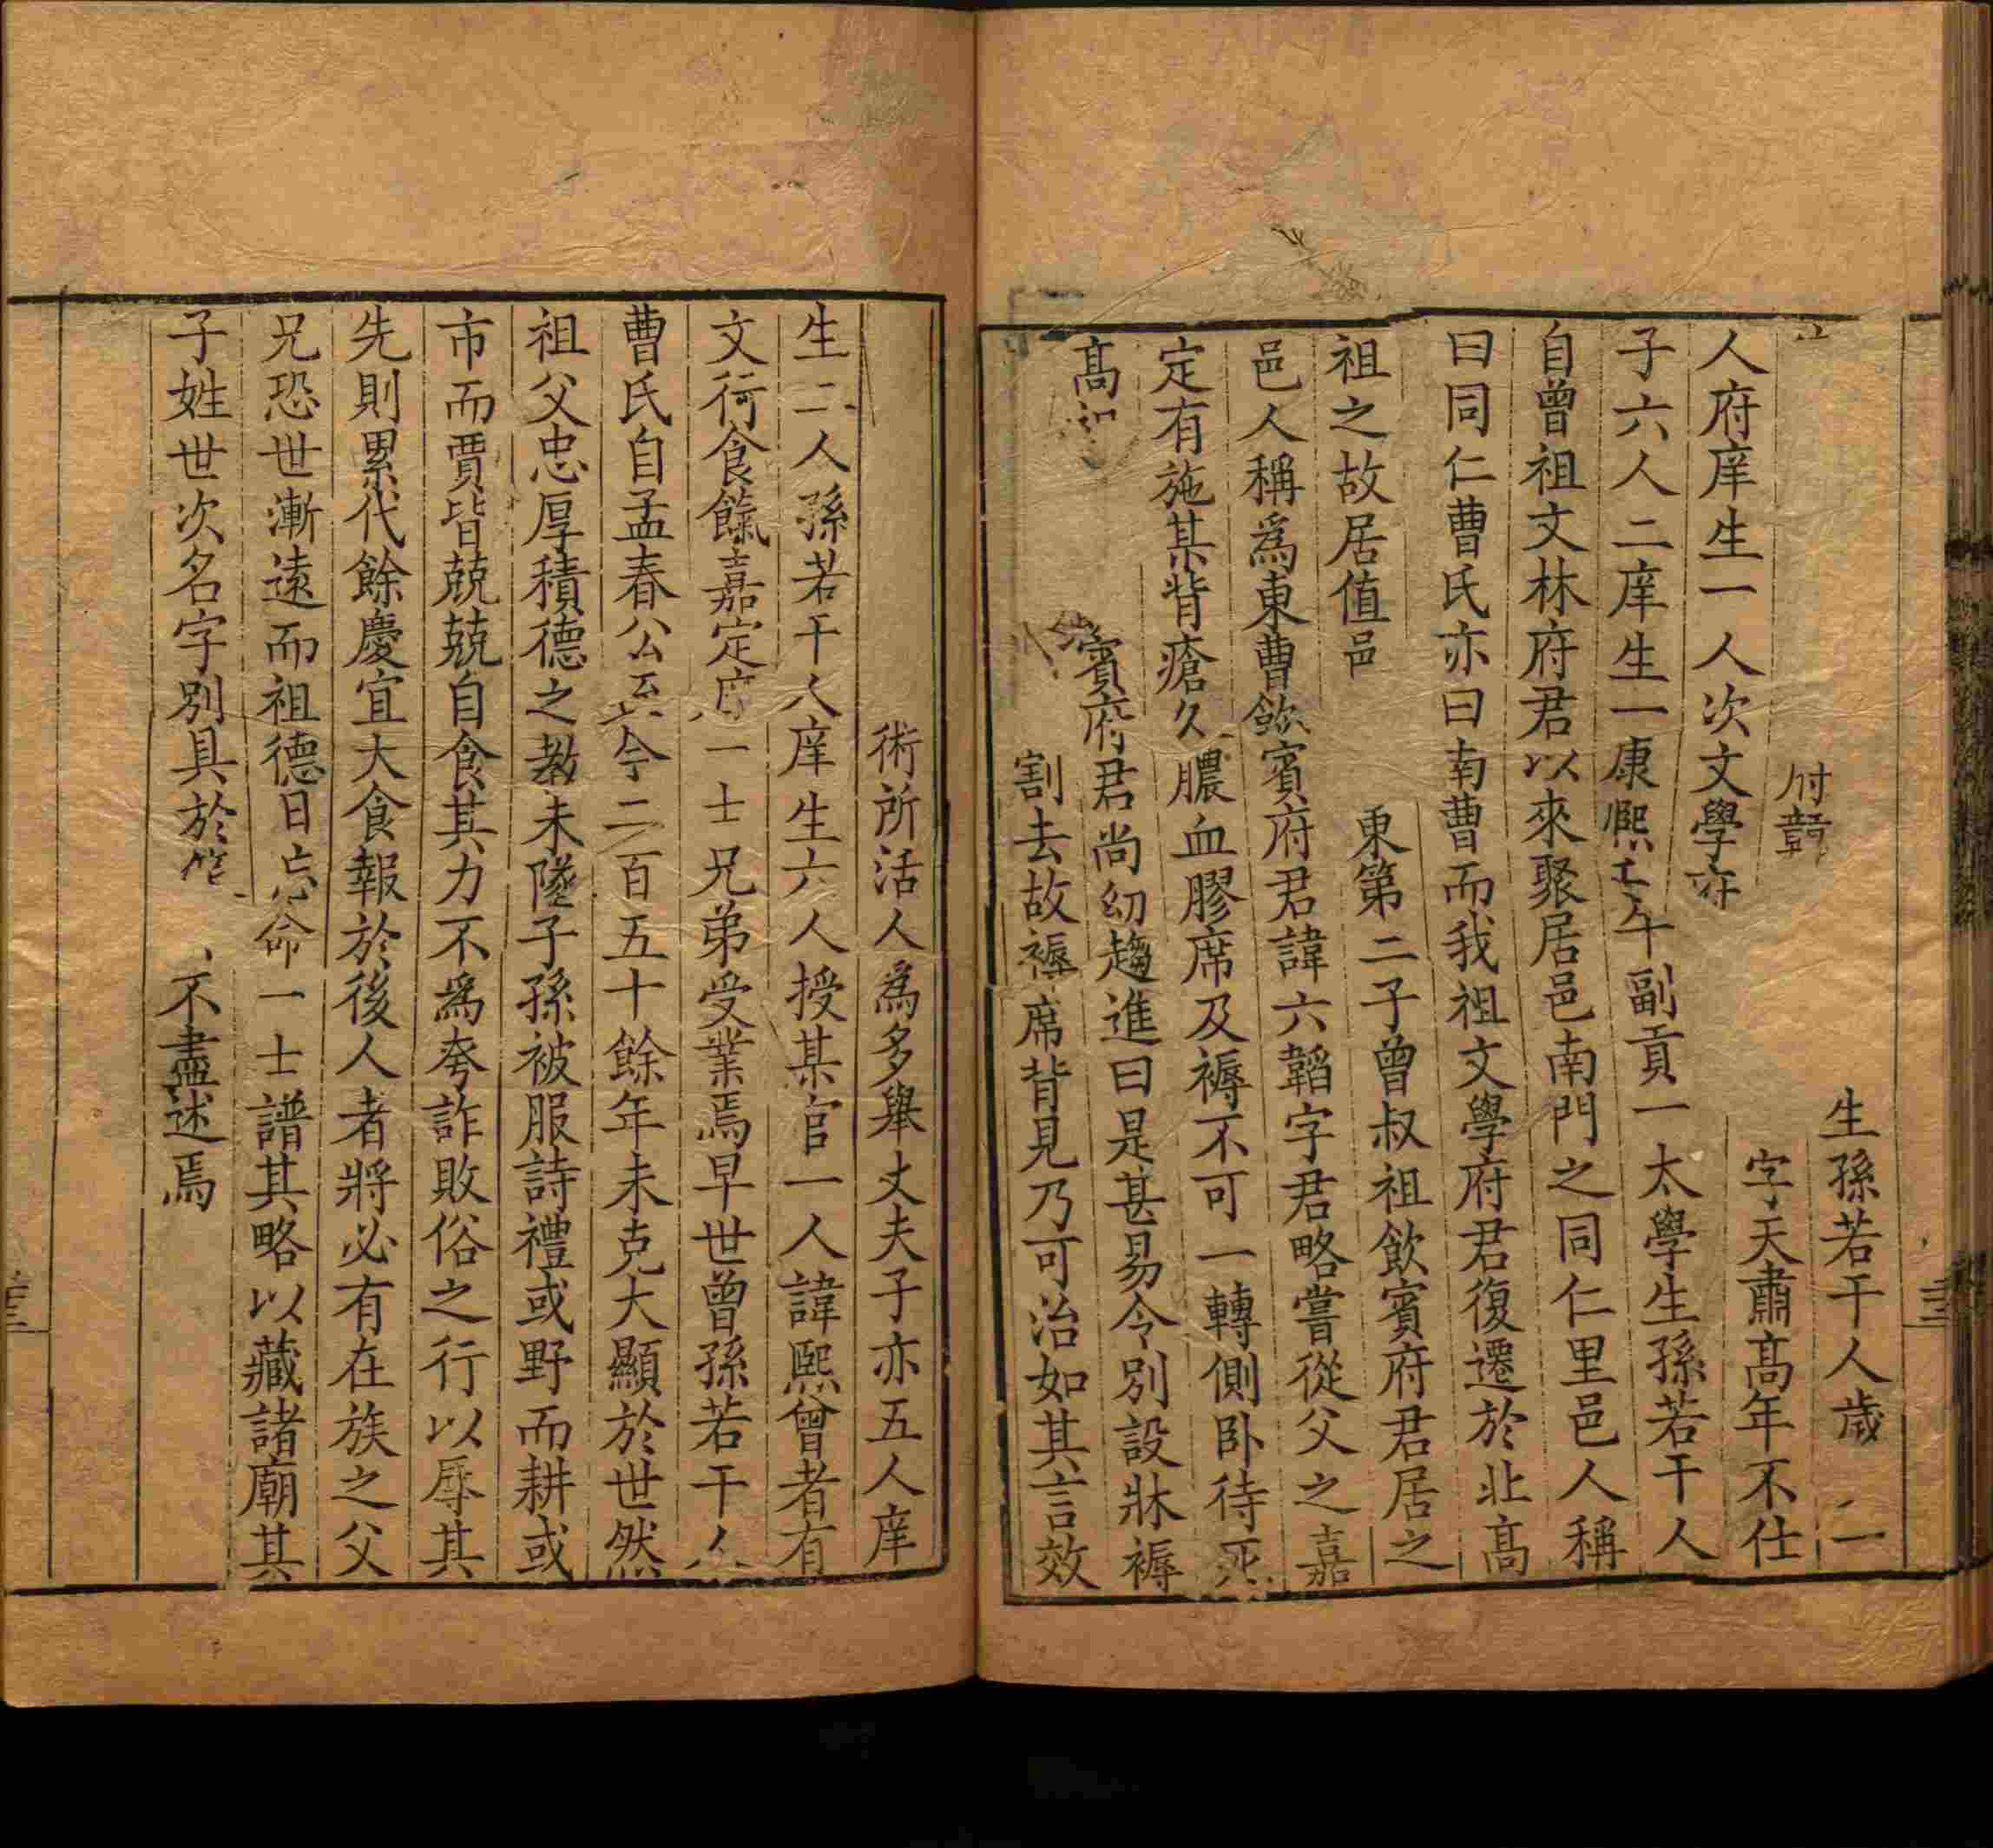 生孫若干人歲二
字天肅高年不仕
人府庠生一人次文學
子六人二庠生一康熙壬午副貢一太學生孫若干人
自曾祖文林府君以來聚居邑南門之同仁里邑人稱
曰同仁曹氏亦曰南曹而我祖文學府君復遷於北高
祖之故居值邑東第二子曾叔祖飲賓府君居之
邑人稱爲東曹飲賓府君諱六韜字君略嘗從父之嘉
定有施某背瘡久膿血膠席及褥不可一轉側卧待死
高賓府君尚幼趨進曰是甚易令別設牀褥
割去故褥席背見乃可治如其言效
術所活人爲多舉丈夫子亦五人庠
生二人孫若干人庠生六人授某官一人諱熙曾者有
文行食餼嘉定一士兄弟受業焉早世曾孫若干人
曹氏自孟春公至今二百五十餘年未克大顯於世然
祖父忠厚積德之教未墜子孫被服詩禮或野而耕或
市而賈皆兢兢自食其力不爲夸詐敗俗之行以辱其
先則累代餘慶宜大食報於後人者將必有在族之父
兄恐世漸遠而祖德日忘命一士譜其略以藏諸廟其
子姓世次名字別具於不盡述焉